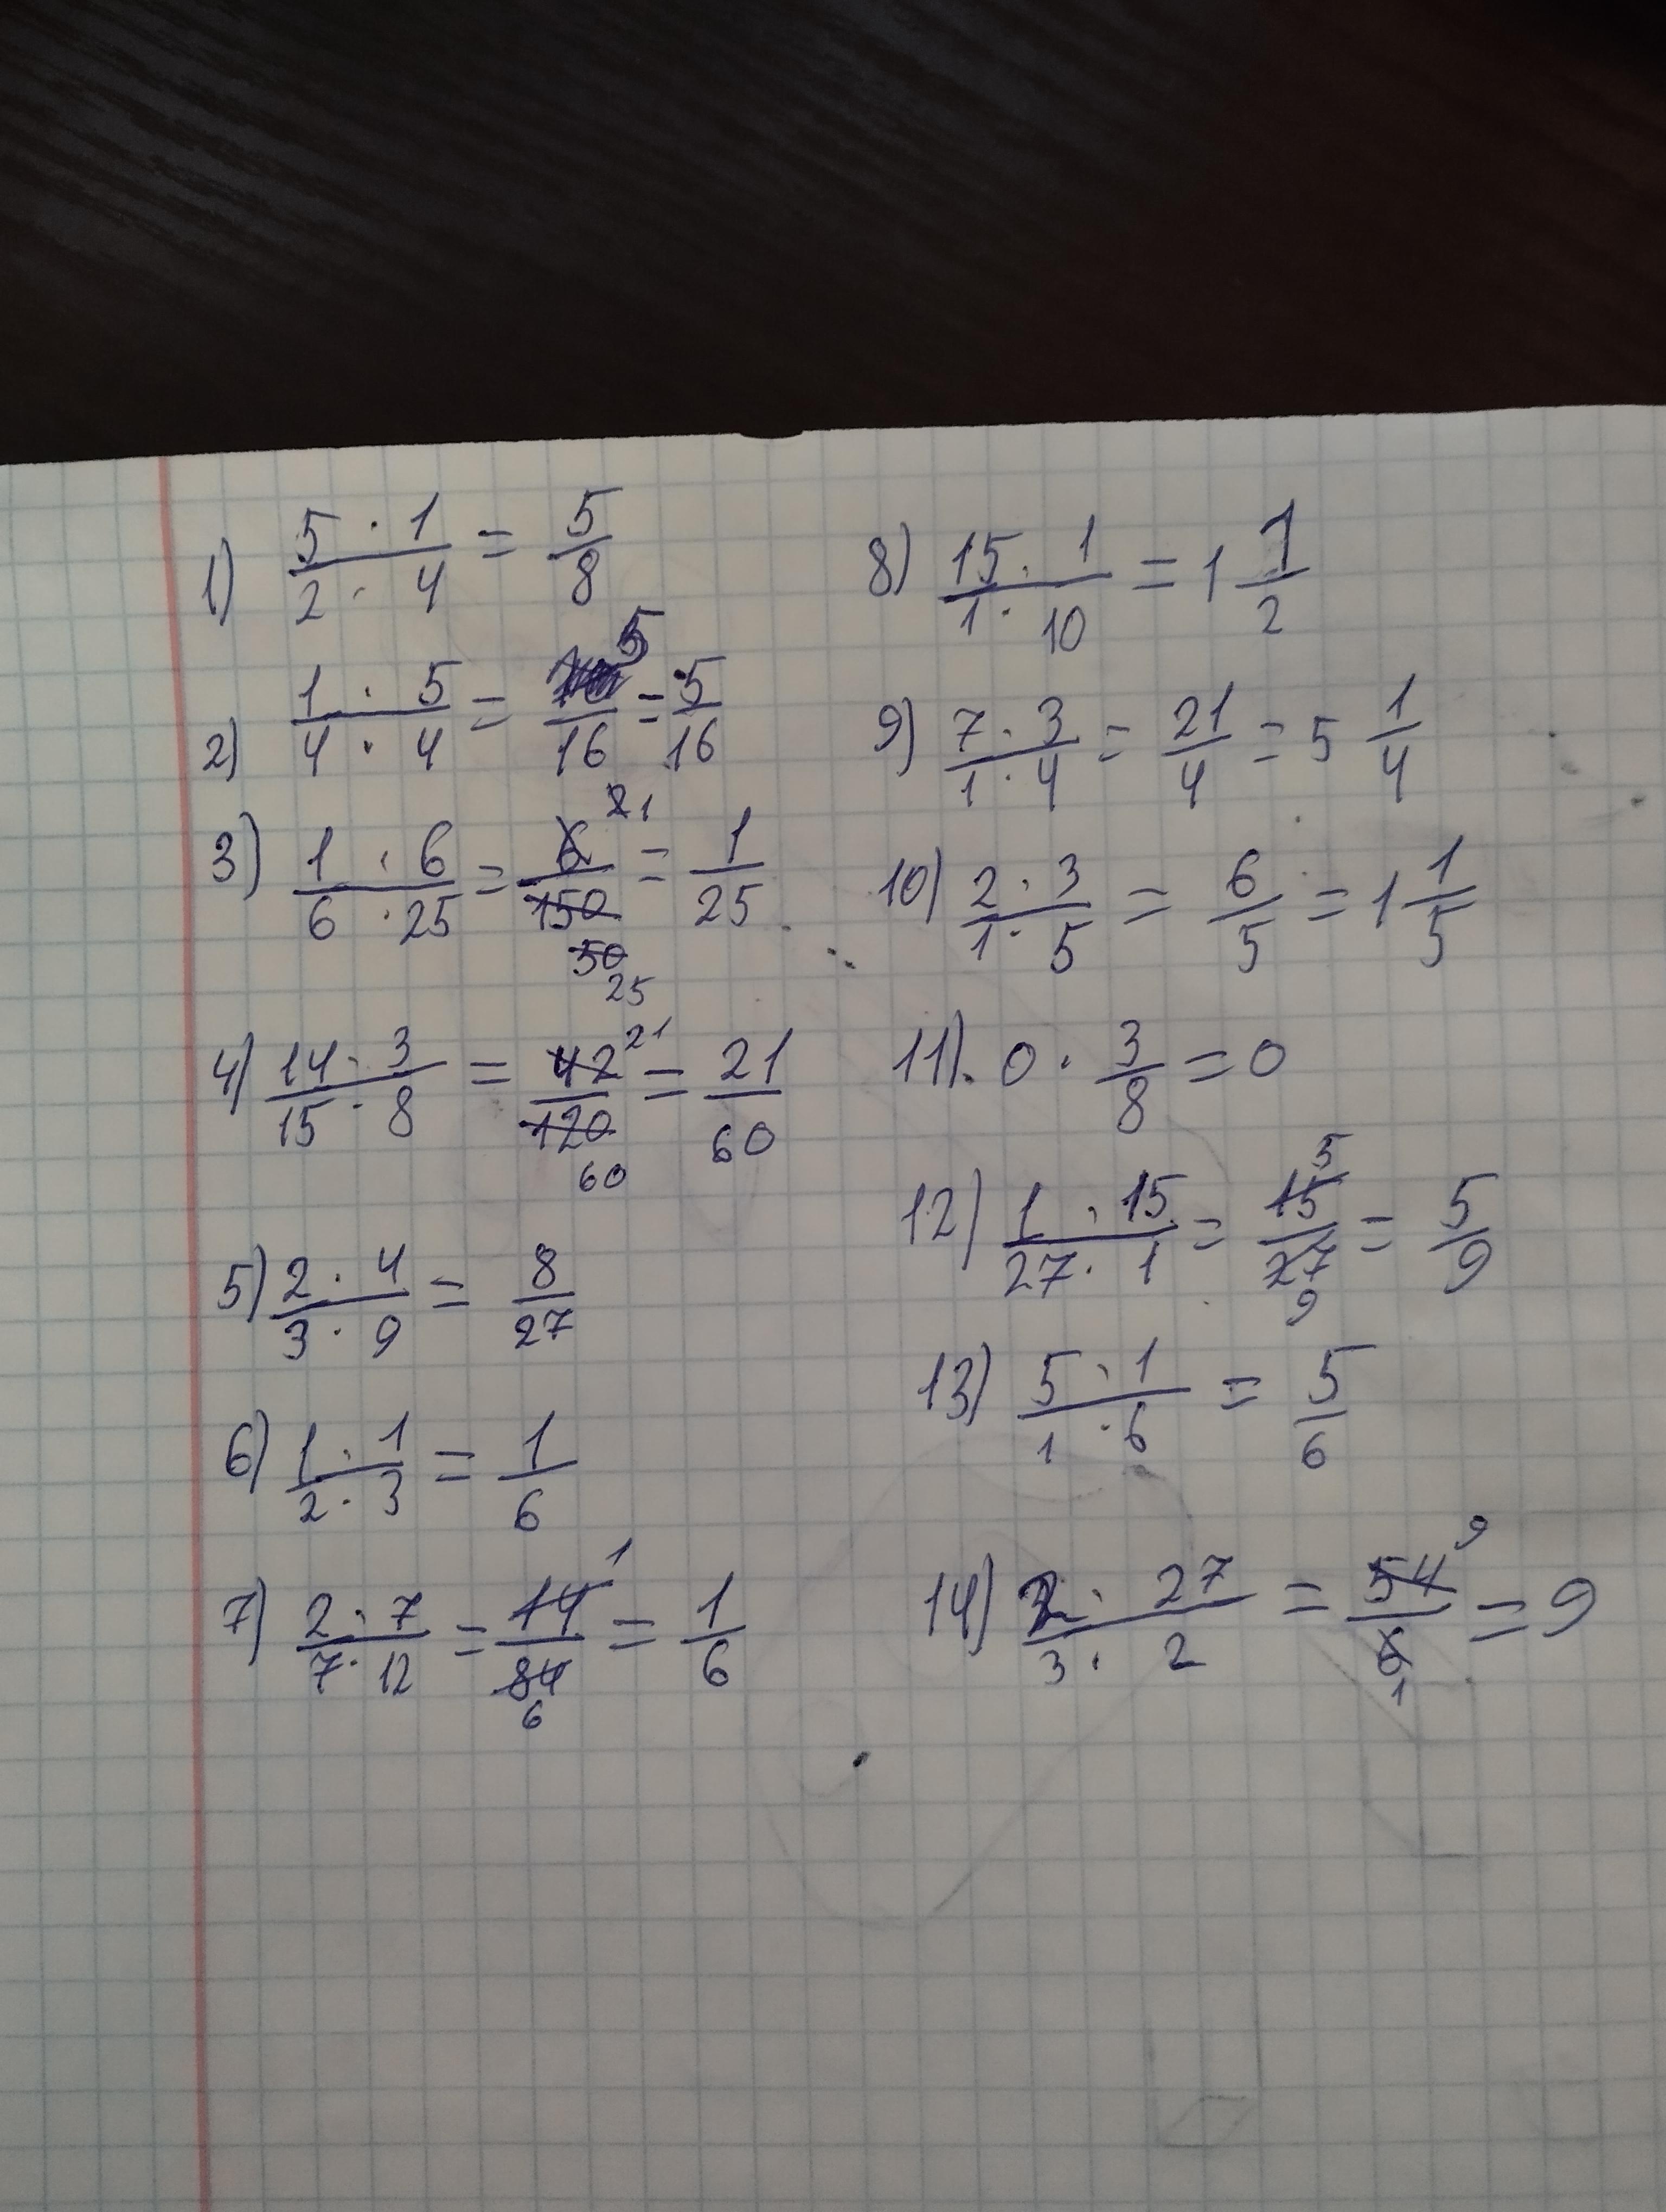 1) 5 · 1 / 2 · 4 = 5/8
2) 1 · 5 / 4 · 4 = 5/16 = 5/16
3) 1 · 6 / 6 · 25 = 6/150 21 50 25 = 1/25
4) 14 · 3 / 15 · 8 = 42/120 21 60 = 21/60
5) 2 · 4 / 3 · 9 = 8/27
6) 1 · 1 / 2 · 3 = 1/6
7) 2 · 7 / 7 · 12 = 14/84 1 6 = 1/6
8) 15 · 1 / 1 · 10 = 1 1/2
9) 7 · 3 / 1 · 4 = 21/4 = 5 1/4
10) 2 · 3 / 1 · 5 = 6/5 = 1 1/5
11). 0 · 3/8 = 0
12) 1 · 15 / 27 · 1 = 15/27 5 9 = 5/9
13) 5 · 1 / 1 · 6 = 5/6
14) 2 · 27 / 3 · 2 = 54/6 9 1 = 9